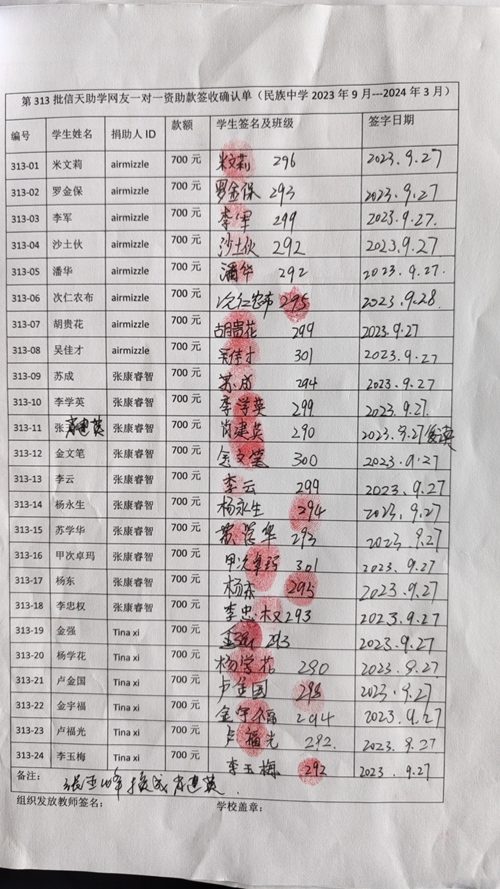 第 313 批信天助学网友一对一资助款签收确认单（民族中学 2023 年 9 月---2024 年 3 月）
编号 学生姓名 捐助人 ID 款额 学生签名及班级 签字日期
313-01 米文莉 airmizzle 700 元 米文莉 296 2023.9.27
313-02 罗金保 airmizzle 700 元 罗金保 293 2023.9.27
313-03 李军 airmizzle 700 元 李军 299 2023.9.27.
313-04 沙土伙 airmizzle 700 元 沙土伙 292 2023.9.27
313-05 潘华 airmizzle 700 元 潘华 292 2023.9.27.
313-06 次仁农布 airmizzle 700 元 次仁农布 295 2023.9.28
313-07 胡贵花 airmizzle 700 元 胡贵花 299 2023.9.27
313-08 吴佳才 airmizzle 700 元 吴佳才 301 2023.9.27
313-09 苏成 张康睿智 700 元 苏成 294 2023.9.27
313-10 李学英 张康睿智 700 元 李学英 299 2023.9.27.
313-11 张 肖建英 张康睿智 700 元 肖建英 290 2023.9.27
313-12 金文笔 张康睿智 700 元 金文笔 300 2023.9.27
313-13 李云 张康睿智 700 元 李云 299 2023.9.27
313-14 杨永生 张康睿智 700 元 杨永生 294 2023.9.27
313-15 苏学华 张康睿智 700 元 苏学华 293 2023.9.27
313-16 甲次卓玛 张康睿智 700 元 甲次卓玛 301 2023.9.27
313-17 杨东 张康睿智 700 元 杨东 295 2023.9.27
313-18 李忠权 张康睿智 700 元 李忠权 293 2023.9.27
313-19 金强 Tina xi 700 元 金强 293 2023.9.27
313-20 杨学花 Tina xi 700 元 杨学花 290 2023.9.27
313-21 卢金国 Tina xi 700 元 卢金国 298 2023.9.27
313-22 金宇福 Tina xi 700 元 金宇福 294 2023.9.27
313-23 卢福光 Tina xi 700 元 卢福光 292. 2023.9.27
313-24 李玉梅 Tina xi 700 元 李玉梅 292 2023.9.27
备注： 换成肖建英.
组织发放教师签名： 学校盖章：